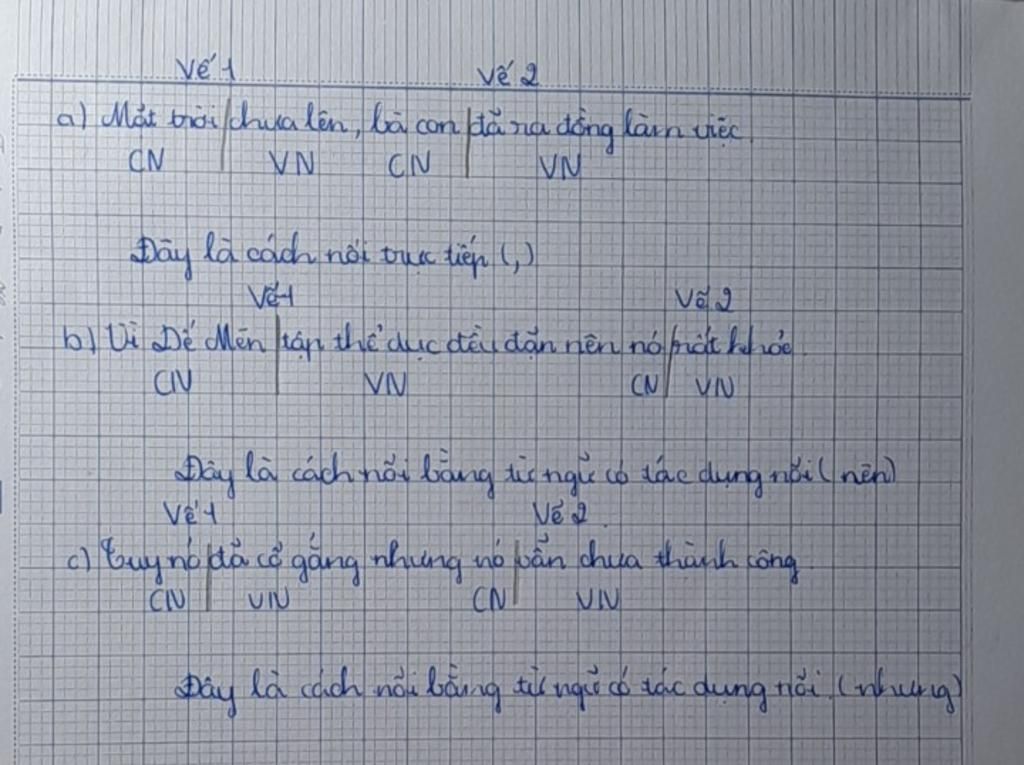 Vế 1 Vế 2
a) Mặt trời / chưa lên, bà con / đã ra đồng làm việc.
CN VN CN VN
Đây là cách nối trực tiếp (,)
Vế 1 Vế 2
b) Vì Dế Mèn / tập thể dục đều đặn nên nó / rất khỏe.
CN VN CN VN
Đây là cách nối bằng từ ngữ có tác dụng nối (nên)
Vế 1 Vế 2.
c) Tuy nó / đã cố gắng nhưng nó / vẫn chưa thành công.
CN VN CN VN
Đây là cách nối bằng từ ngữ có tác dụng nối. (nhưng)